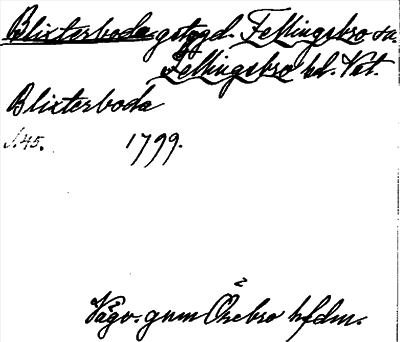 Blixterboda gstggd. Fellingsbro sn.
Fellingsbro hd. Vst.
Blixterboda
s. 45. 1799.
Vägv. gnm Örebro hfdm.